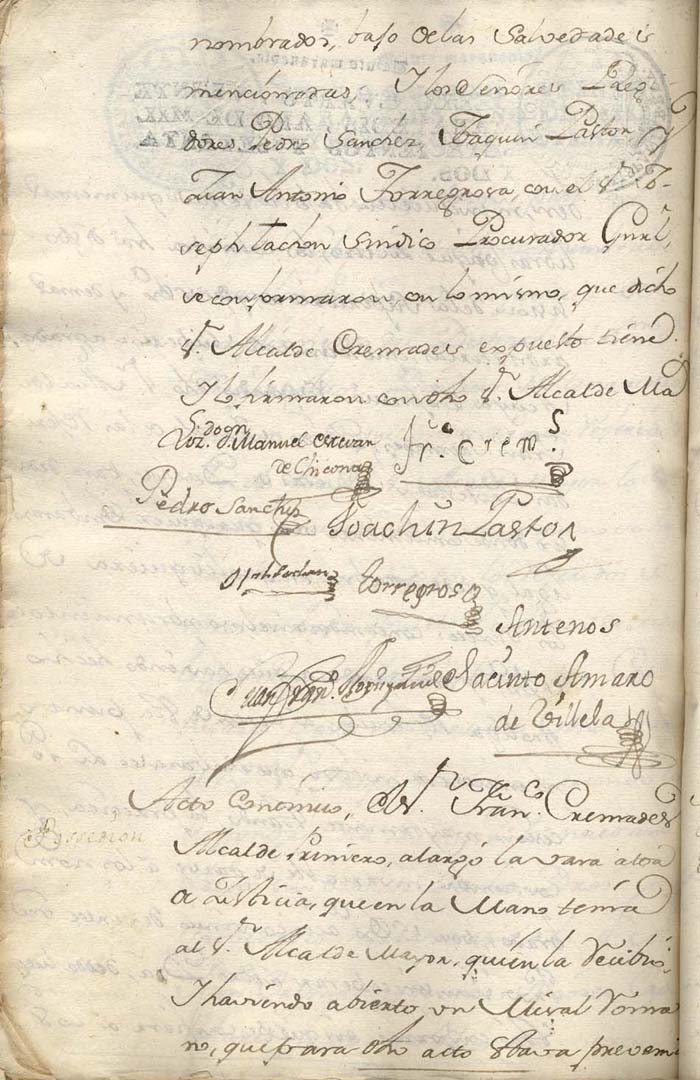 nombrados, bajo delas Salvedades
mencionadas, Y los Señores Regi
dores, Pedro Sanchez, Joaquin Pastor, y
Juan Antonio Torregrosa, con el Sr. Jo-
seph Sindico Procurador Gnrl,
se conformaron con lo mismo, que dicho
Sr. Alcalde Cremades expuesto tiene.
Y lo firmaron con dho Sr. Alcalde Ma
Dn. Manuel Estevan
de Chicona
Frco. Crem.s
Pedro Sanchiz
Joachin Pastor
Torregrosa
Antenos
Juan
Jacinto Amaro
de Villela
Acto Continuo, el Sr. Franco. Cremades
Possecion
Alcalde Primero, alargó la vara alta
de Justicia, que en la Mano tenia
al Sr. Alcalde Mayor, quien la recibió,
Y haviendo abierto, un Misal Roma
no, que para dho acto estava preveni